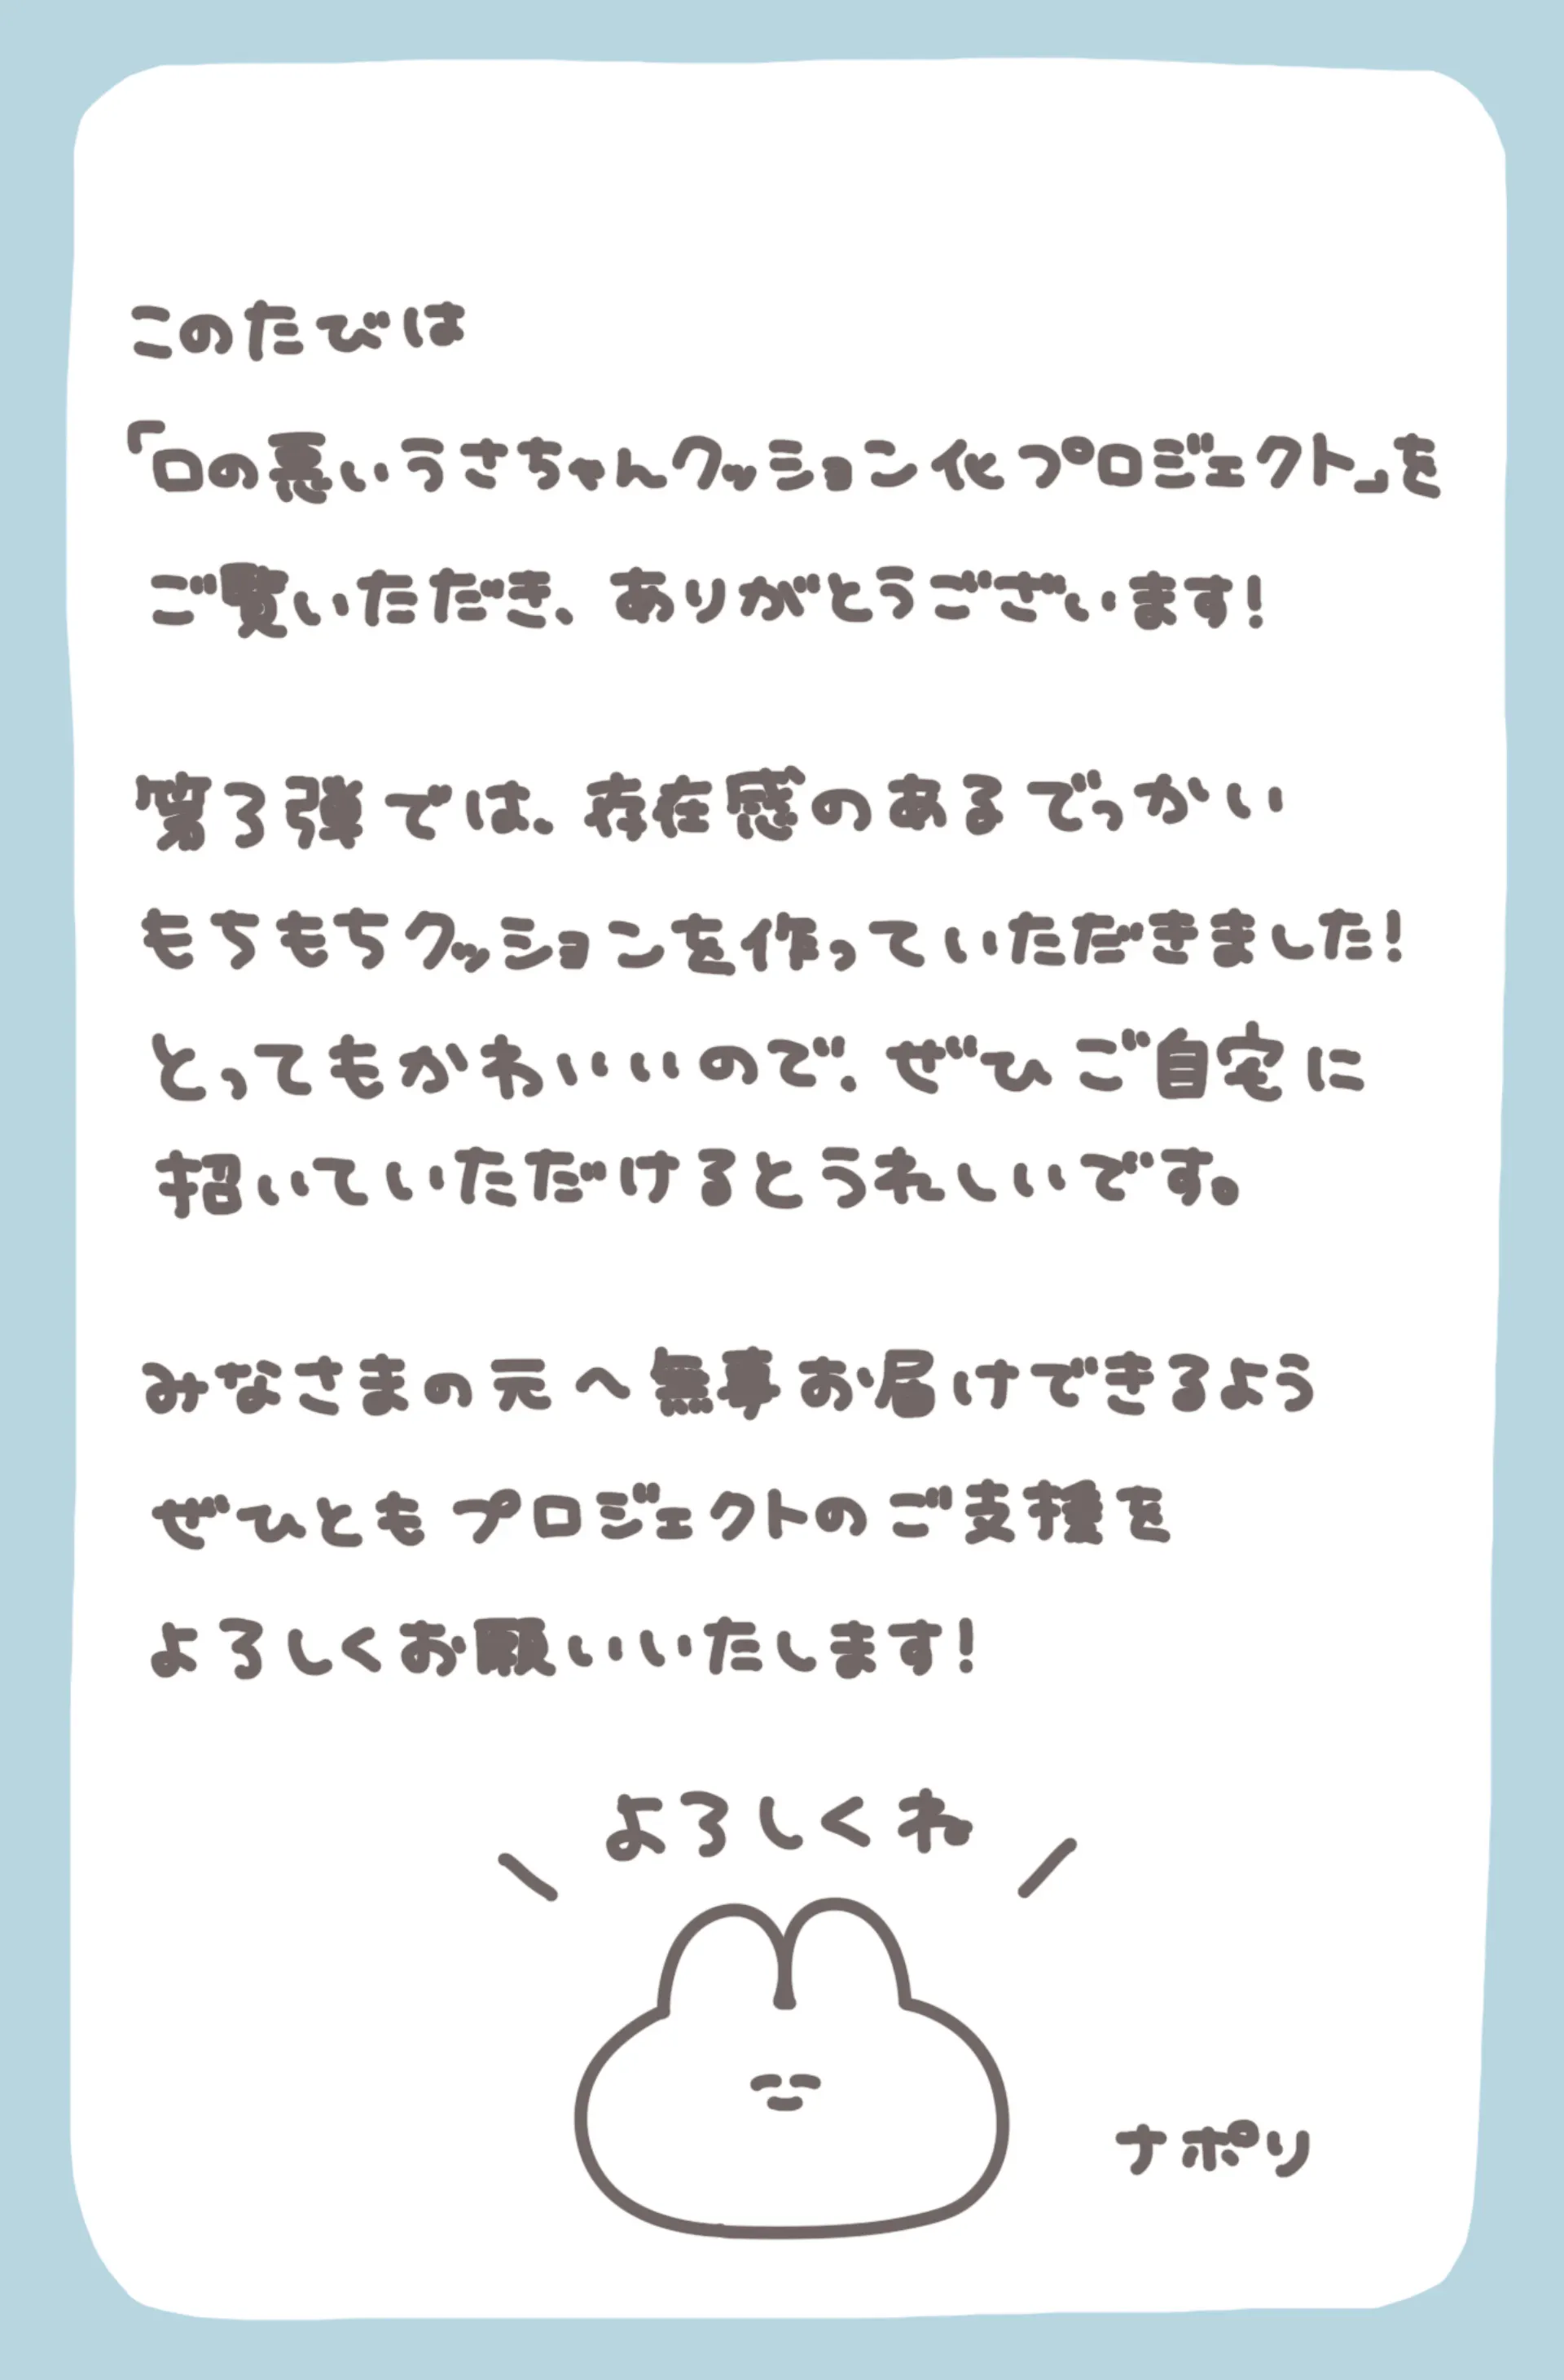 このたびは
「口の悪いうさちゃんクッション化プロジェクト」を
ご覧いただき、ありがとうございます!
第3弾では、存在感のあるでっかい
もちもちクッションを作っていただきました!
とってもかわいいので、ぜひご自宅に
招いていただけるとうれしいです。
みなさまの元へ無事お届けできるよう
ぜひともプロジェクトのご支援を
よろしくお願いいたします!
よろしくね
ナポリ